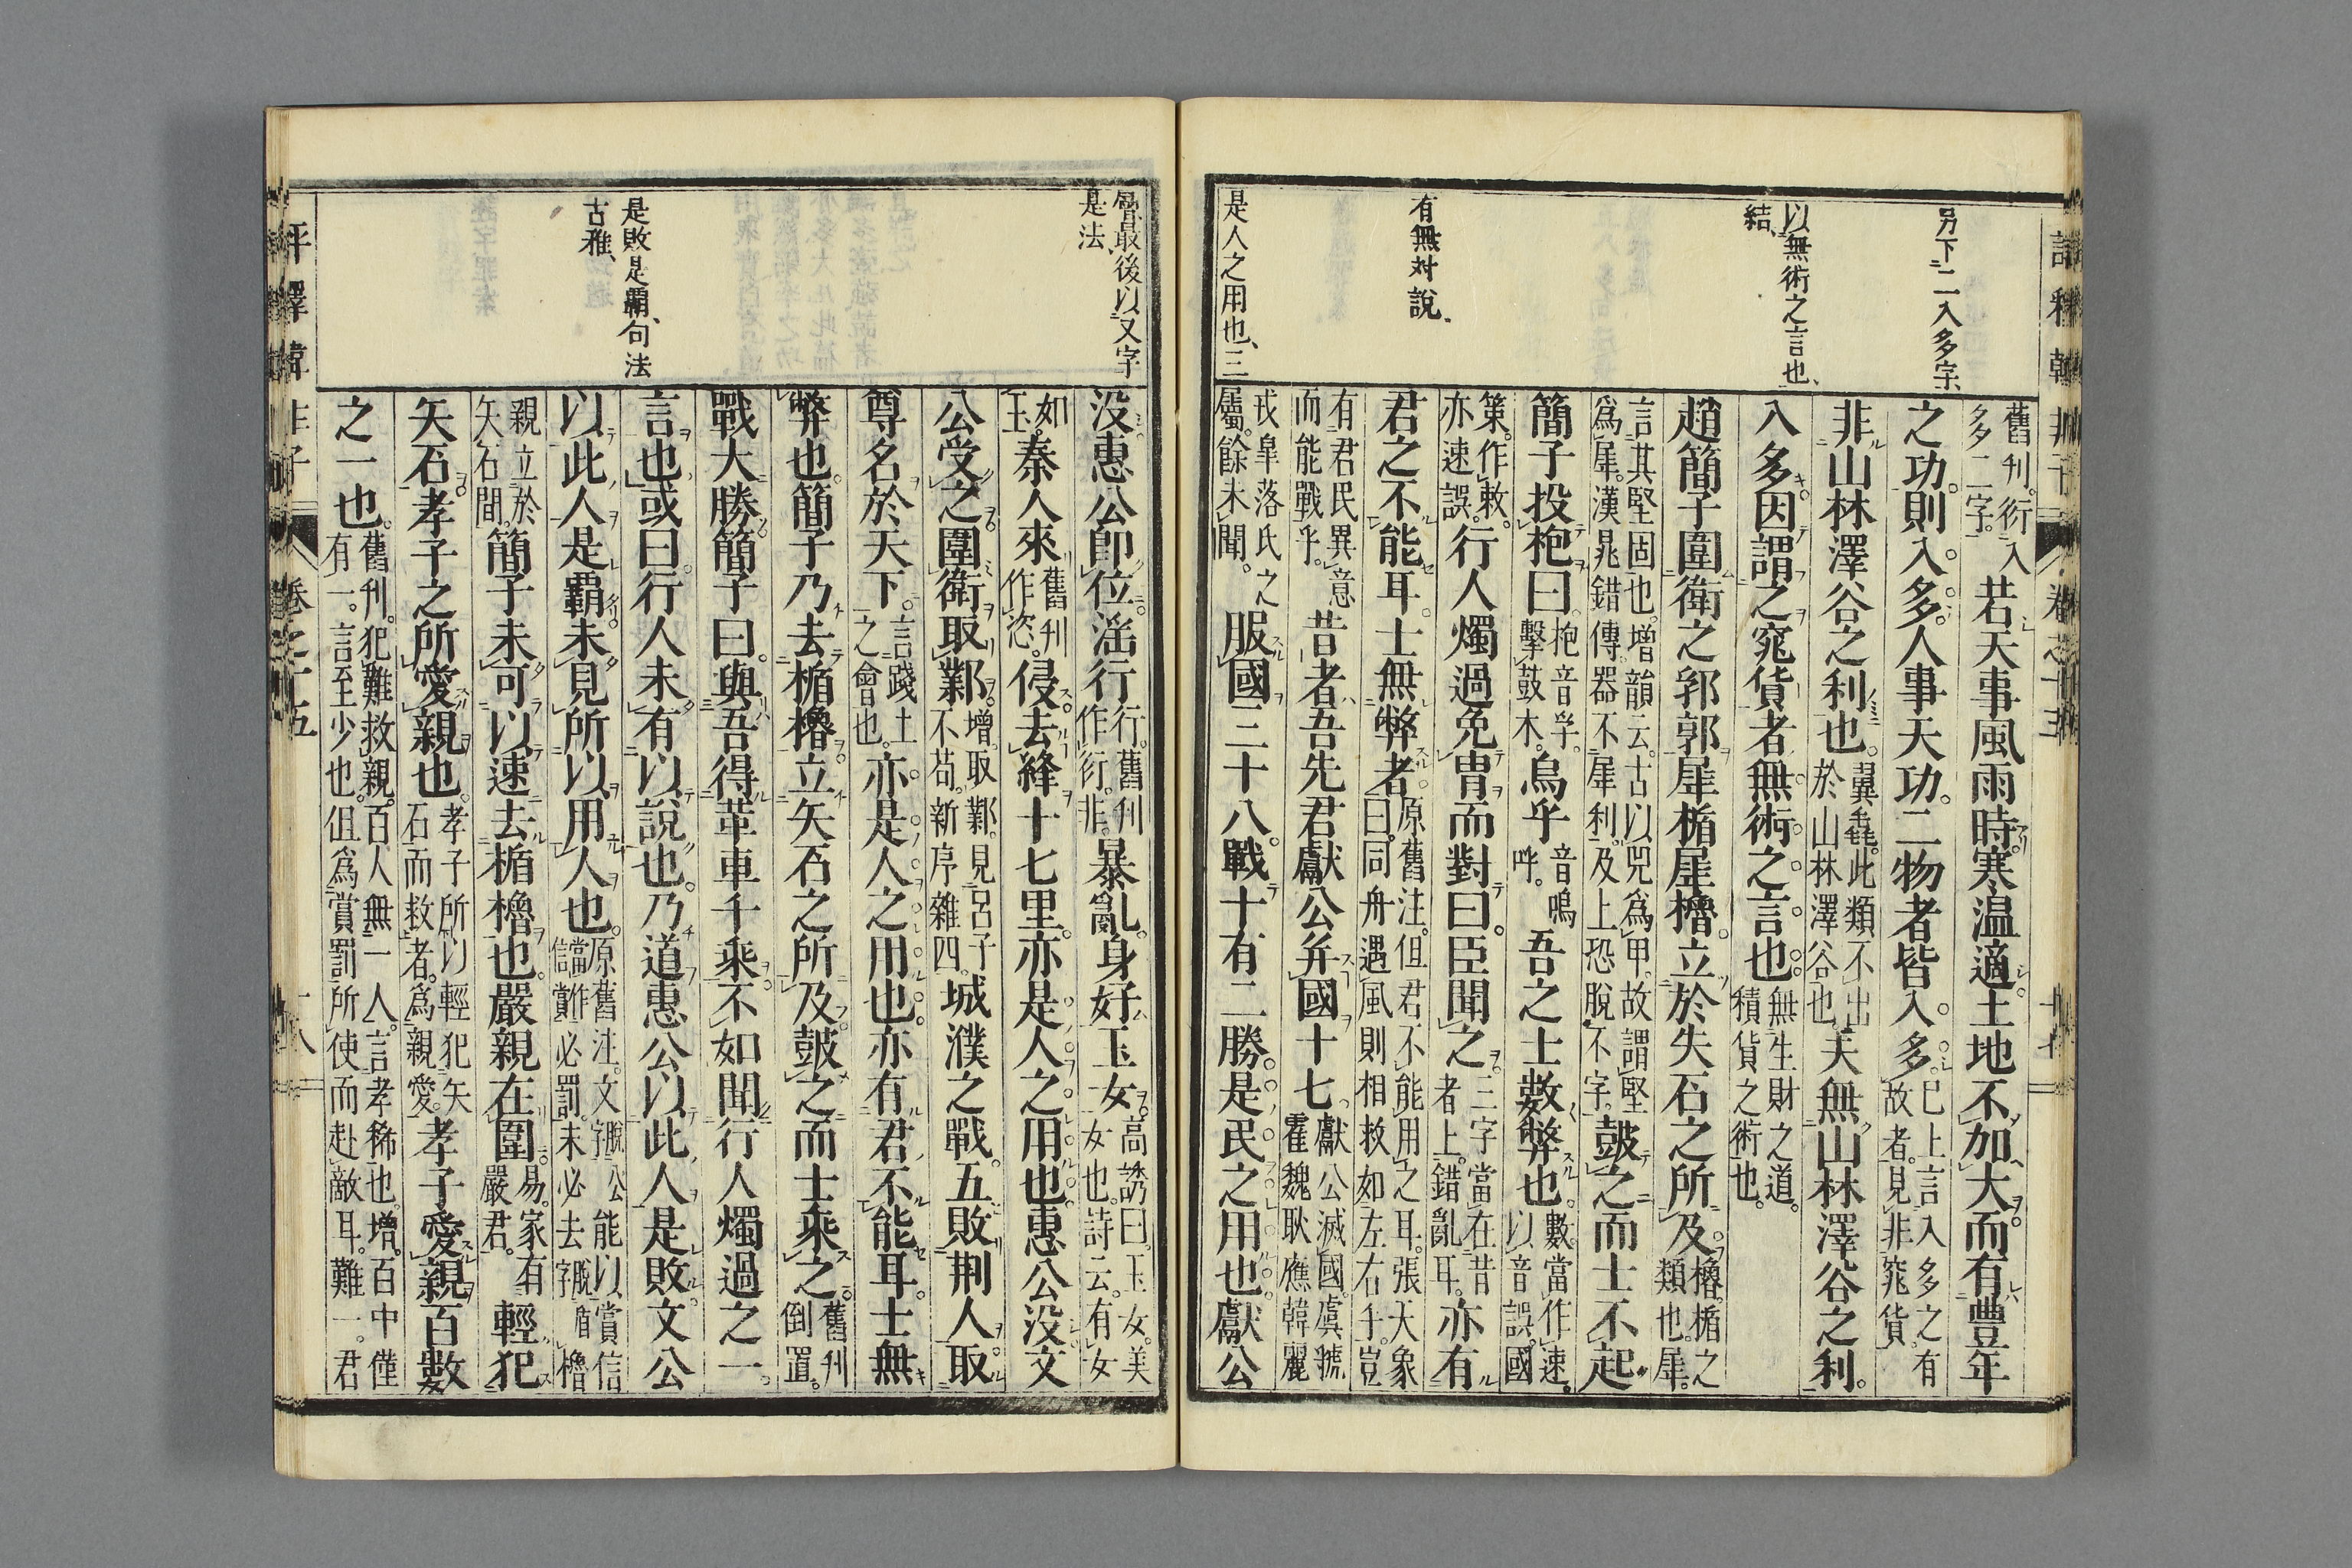 另下二入多字、
以無術之言也、
結、
有無対説、
是人之用也、三
舊刋。衍入多二字。若天事風雨時寒温適土地不加大而有豐年
之功。則入多。人事天功。二物者皆入多。已上言入多之有故者。見非窕貨
非山林澤谷之利也。翼毳。此類不出於山林澤谷也夫無山林澤谷之利。
入多因謂之窕貨者無術之言也無生財之道。積貨之術也。
趙簡子圍衛之郛郭犀楯犀櫓。立於矢石之所及。櫓。楯之類也。犀。
言其堅固也。增韻云。古以兕爲甲。故謂堅爲犀。漢晁錯傳。器不犀利。及上恐脫不字。鼓之而士不起。
簡子投枹曰。枹音孚。擊鼓木。烏乎音嗚呼。吾之士數弊也。數。當作速。以音誤。國
策。作敕。亦速誤。行人燭過免冑而對曰。臣聞之。三字當在昔者上。錯亂耳。亦有
君之不能耳。士無弊者。原舊注。但君不能用之耳。張大象曰。同舟遇風則相救如左右手。豈
有君民異意而能戰乎。昔者吾先君獻公并國十七。獻公滅國。虞虢霍魏耿應韓麗
戎皐落氏之屬。餘未聞。服國三十八。戰十有二勝。是民之用也。獻公
會最後以又字
是法、
是敗是覇、句法
古雅、
没惠公卽位淫行行。舊刋作衍。非。暴亂。身好玉女。高誘曰。玉女。美女也。詩云。有女
如玉。秦人來舊刋作恣。侵去絳十七里。亦是人之用也。惠公没文
公受之圍衛取鄴。增。取鄴。見呂子不苟。新序雜四。城濮之戰。五敗荆人。取
尊名於天下。言踐土之會也。亦是人之用也。亦有君不能耳。士無
弊也。簡子乃去楯櫓。立矢石之所及。鼓之而士乘之。舊刋倒置。
戰大勝。簡子曰。與吾得革車千乘。不如聞行人燭過之一。
言也。或曰。行人未有以說也。乃道惠公以此人是敗。文公
以此人是覇。未見所以用人也。原舊注。文脫公能以賞信當作賞必罰。未必去脫楯櫓字
親立於矢石間。簡子未可以速去楯櫓也。嚴親在圍。易。家有嚴君。輕犯
矢石。孝子之所愛親也。孝子所以輕犯矢石而救者。爲親愛。孝子愛親百數
之一也。舊刋。犯難救親。百人無一人。言孝稀也。增。百中僅有一。言至少也。但爲賞罰所使而赴敵耳。難一。君
評釋韓非子
卷之十五
十八